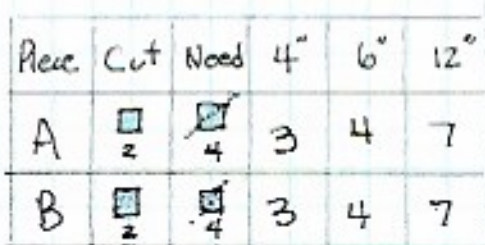 Piece Cut Need 4" 6" 12"
A 2 4 3 4 7
B 2 4 3 4 7